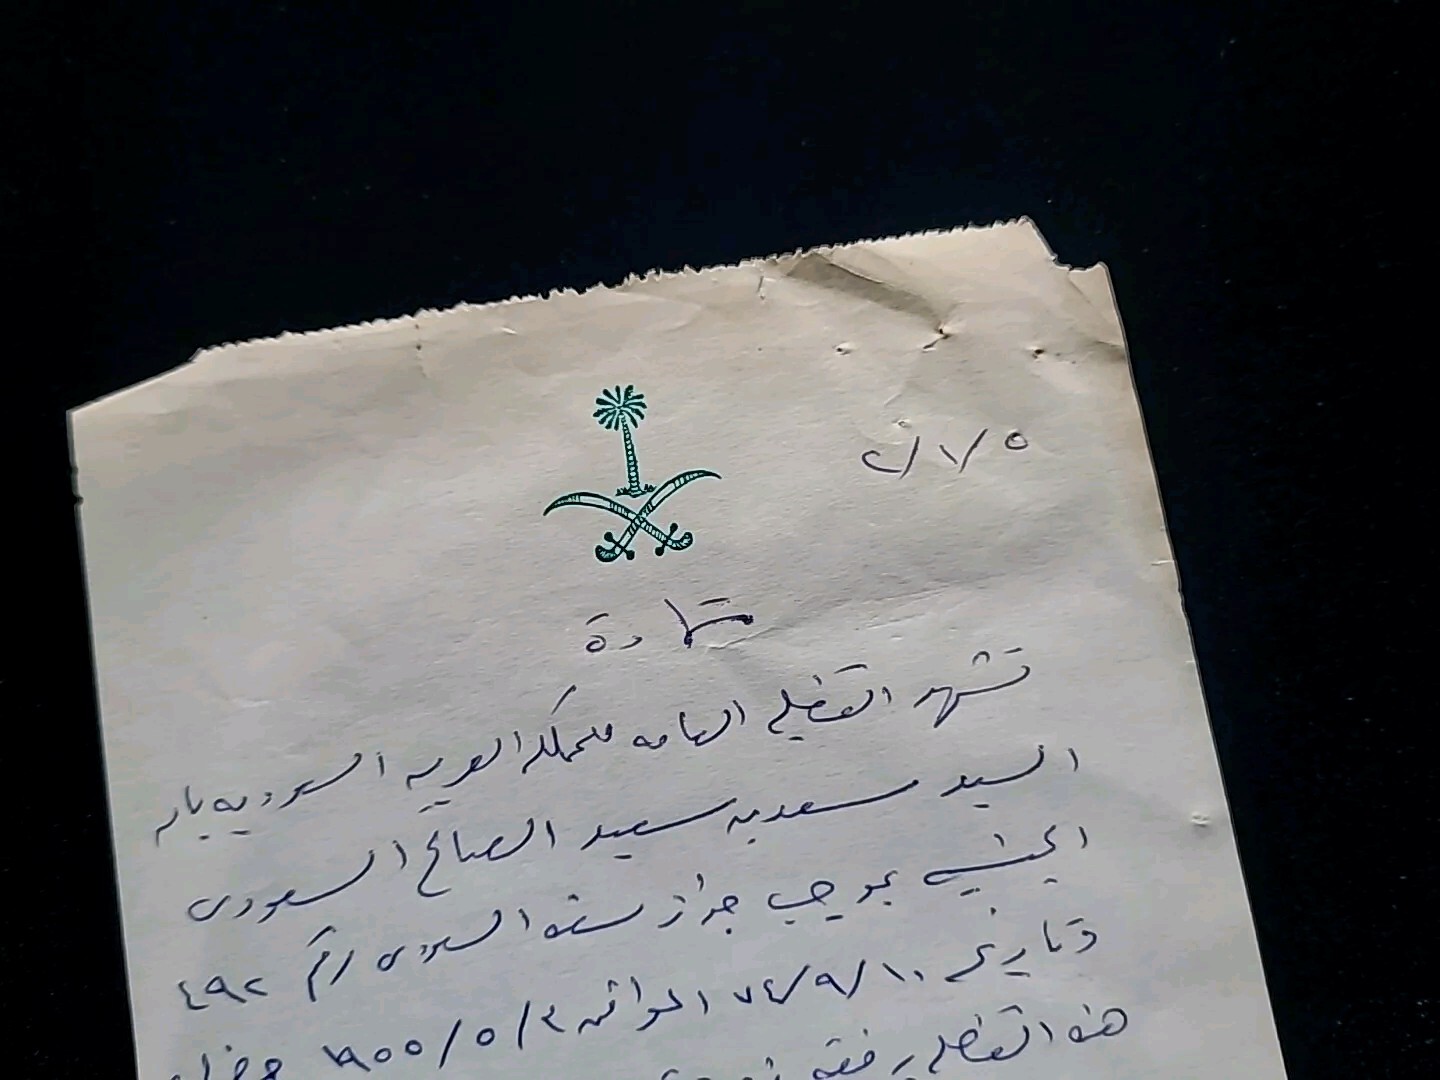 ٥/١/٢
شهادة
تشهد القنصلية العامة للمملكة العربية السعودية بان
السيد سعد بن سعيد الصالح السعودي
الجنسية بموجب جواز سفره السعودي رقم ٤٩٢
وتاريخ ١٠/٩/٧٤ الموافق ٣/٥/١٩٥٥
هذه القنصلية برفقة